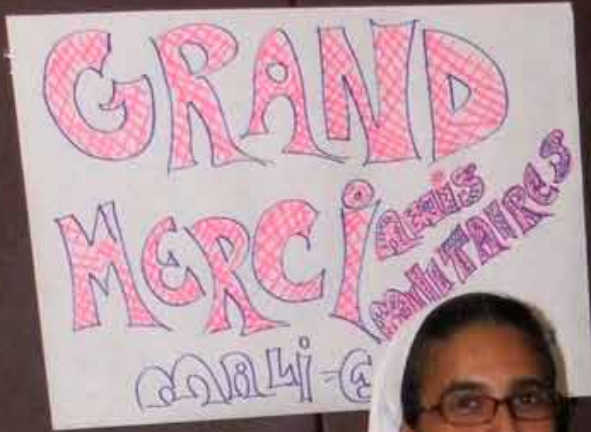 GRAND
MERCI
AMIS
MILITAIRES
MALI-G